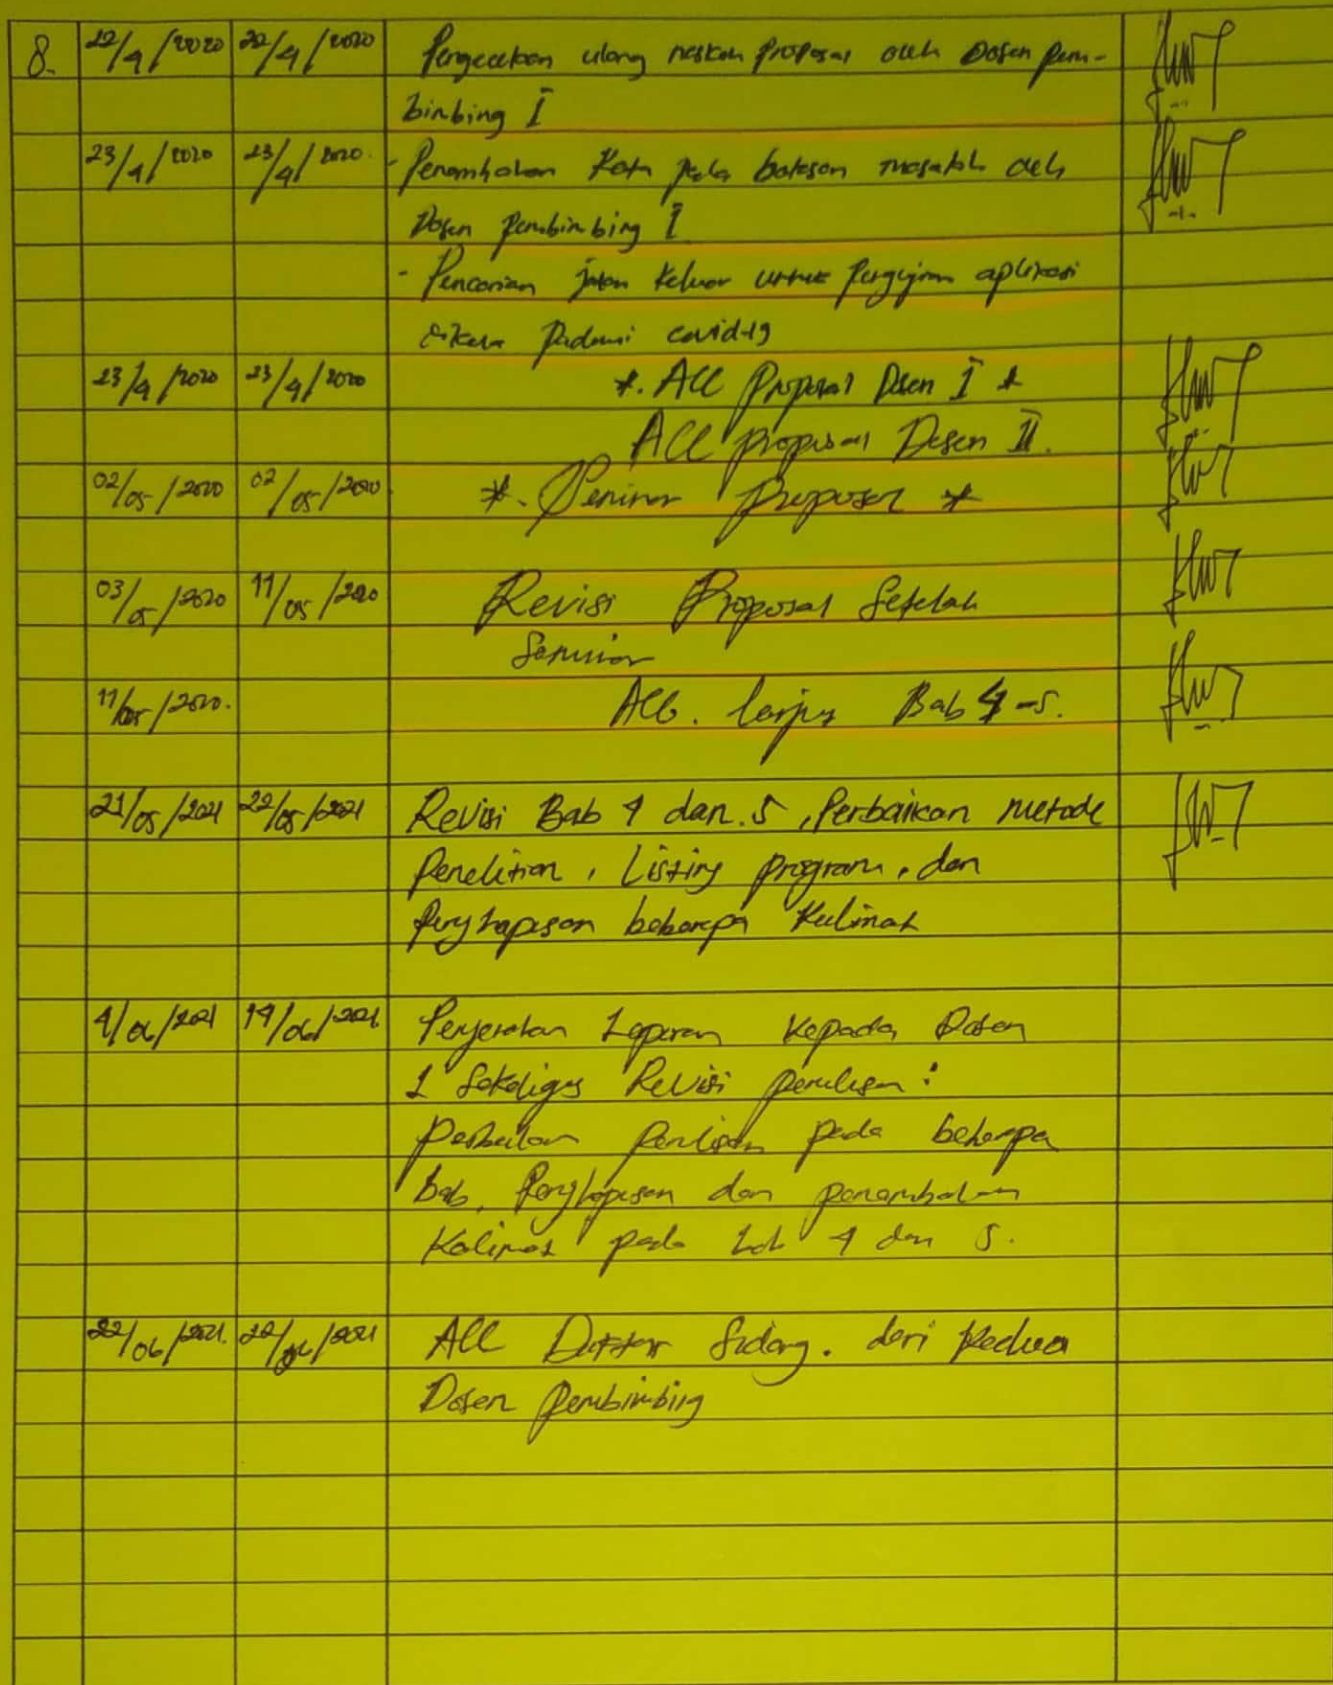 8. 22/4/2020 22/4/2020 Pengecekan ulang naskah proposal oleh Dosen Pem-
bimbing I
23/4/2020 23/4/2020. - Penambahan Kata pada batasan masalah oleh
Dosen Pembimbing I
- Pencarian jalan keluar untuk Pengujian aplikasi
dikala Pademi covid-19
23/4/2020 23/4/2020 *. ACC Proposal Dosen I *
ACC proposal Dosen II.
02/05/2020 02/05/2020 *. Seminar Proposal *
03/05/2020 11/05/2020 Revisi Proposal Setelah
Seminar
11/05/2020. ACC. lanjut Bab 4-5.
21/05/2021 22/05/2021 Revisi Bab 4 dan. 5, Perbaikan metode
Penelitian, Listing program, dan
Penghapusan beberapa Kalimat
4/06/2021 14/06/2021 Penyerahan Laporan Kepada Dosen
1 Sekaligus Revisi penulisan :
Perbaikan Penulisan pada beberapa
bab, Penghapusan dan penambahan
Kalimat pada bab 4 dan 5.
22/06/2021. 22/06/2021 ACC Daftar Sidang. dari Kedua
Dosen Pembimbing